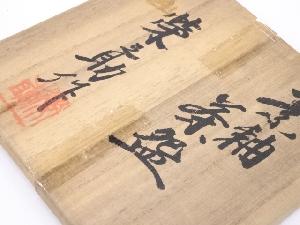 黒釉茶盌
榮助作